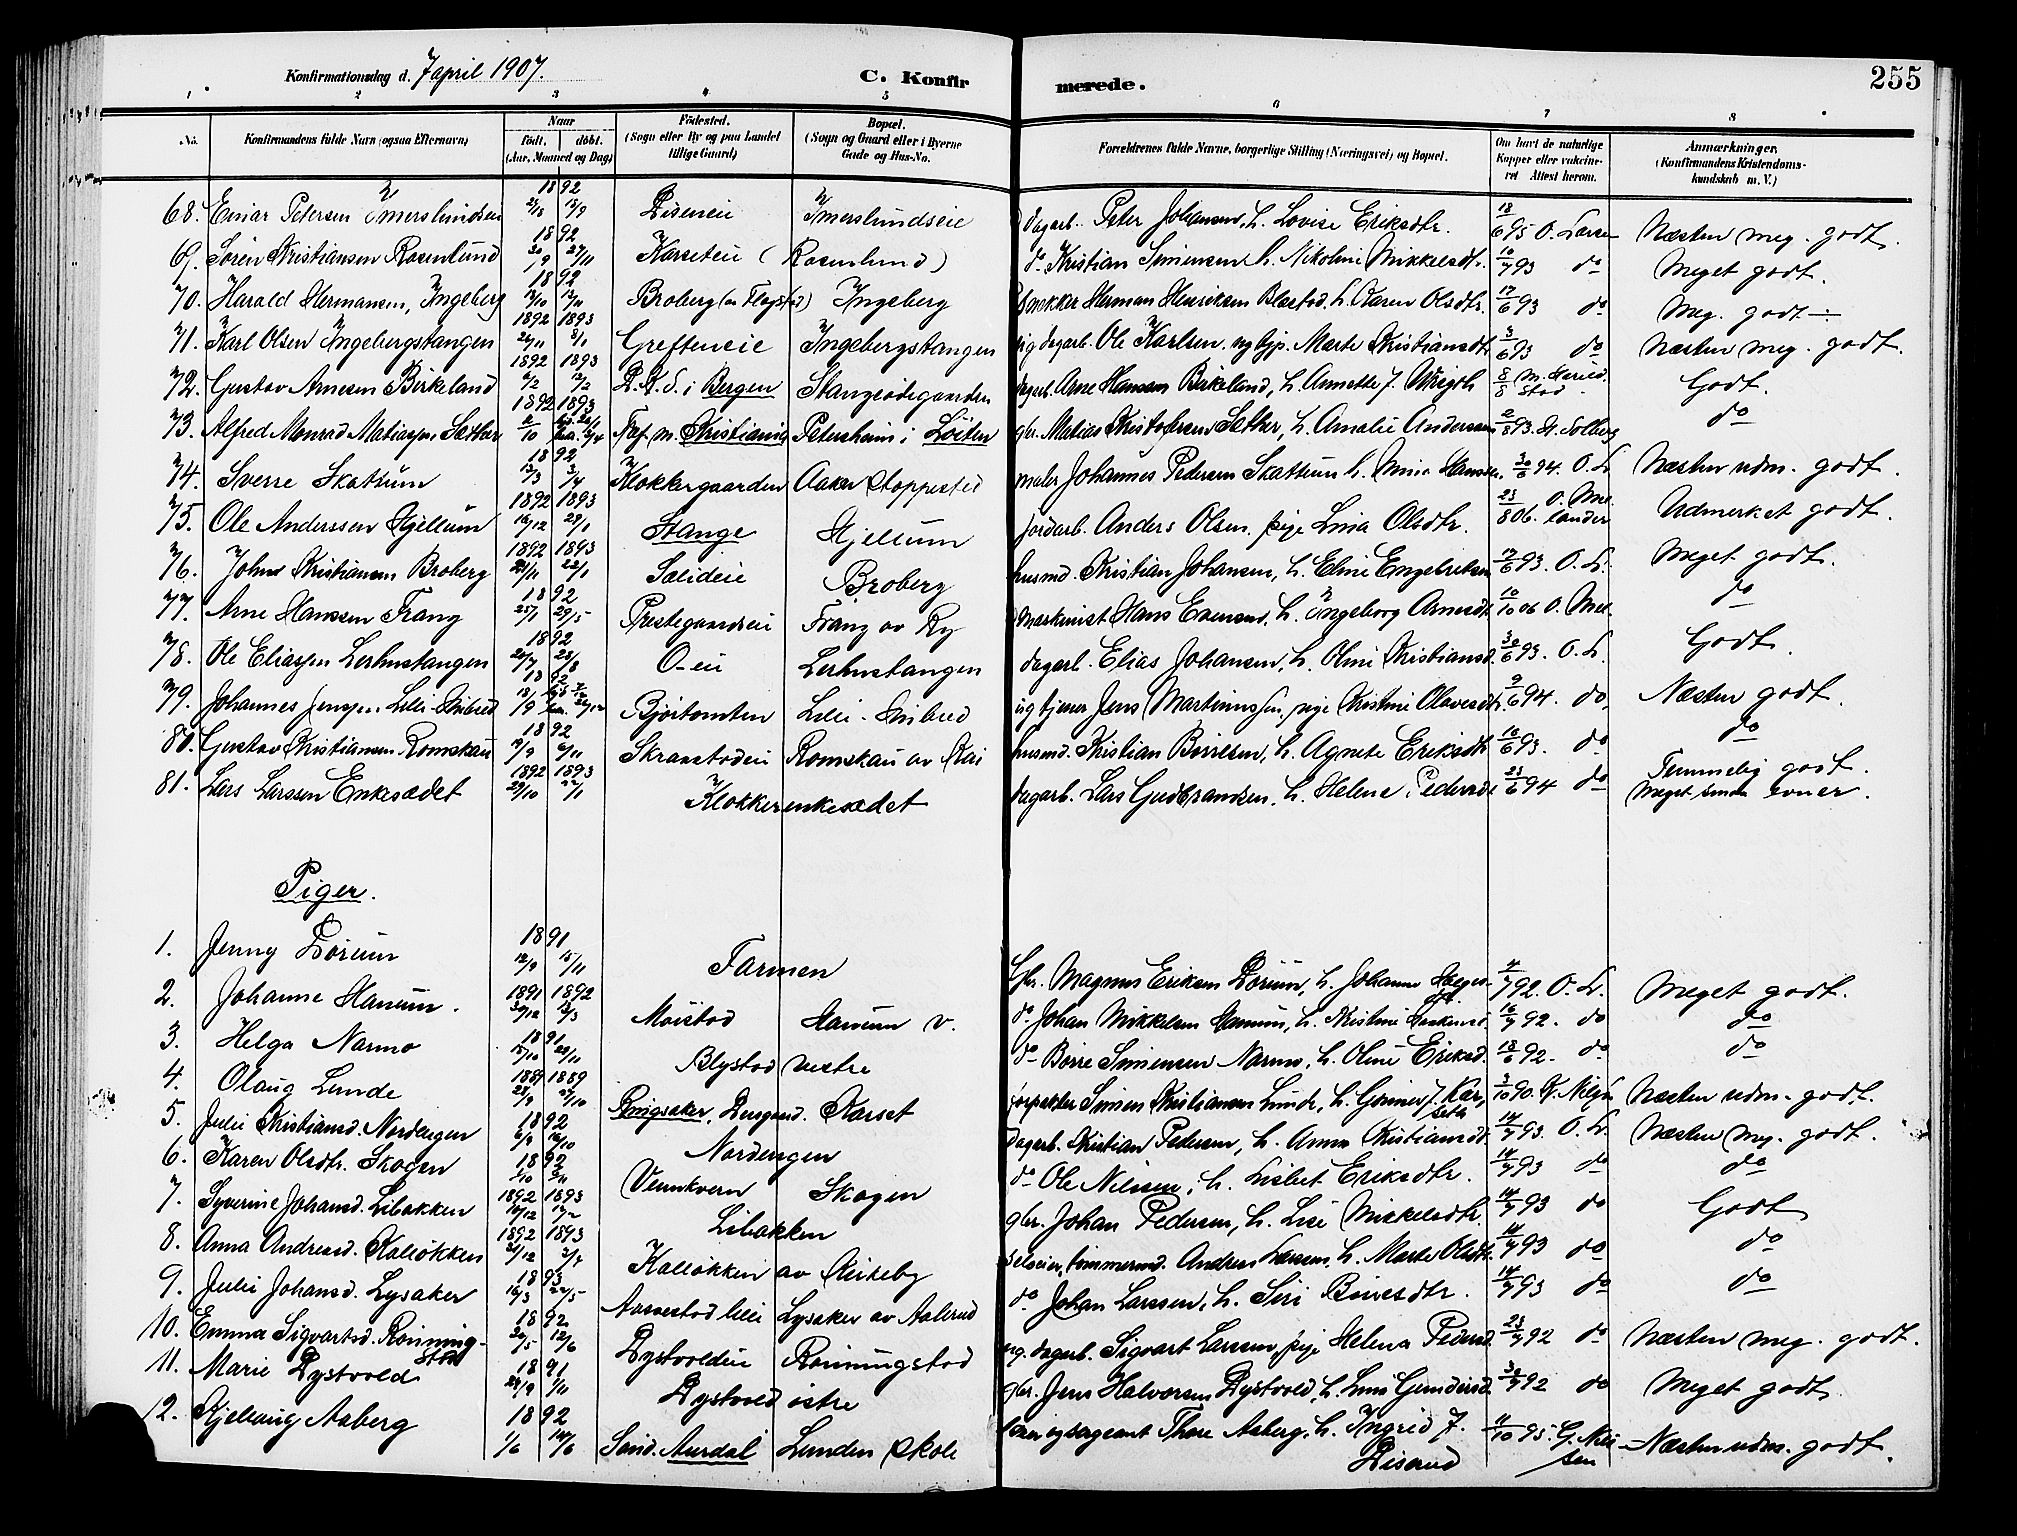 Konfirmationsdag d. 7 april 1907. C. Konfirmerede. 255
1 2 3 4 5 6 7 8
No. Konfirmandens fulde Navn (ogsaa Efternavn) Naar født, døbt. (Aar, Maaned og Dag) Fødested. (Sogn eller By og paa Landet tillige Gaard) Bopæl. (Sogn og Gaard eller i Byerne Gade og Hus-No. Forældrenes fulde Navne, borgerlige Stilling (Næringsvei) og Bopæl. Om havt de naturlige Kopper eller vakcineret Attest herom. Anmærkninger, (Konfirmandens Kristendomskundskab m. V.)
68. Einar Petersen Imerslundseie 1892 Diseneie Imerslundseie dagarb. Peter Johansen, h. Lovise Eriksdtr. 18/6 95 O. Larsen Næsten meg. godt.
69. Søren Kristiansen Rosenlund 1892 20/9 27/11 Karseteie (Rosenlund) do Kristian Simensen h. Nikoline Mikkelsdtr. 10/7 93 do Meget godt.
70. Harald Hermansen, Ingeberg 1892 Broberg Ingeberg Herman Henriksen h. Karen Olsdtr. 17/6 93 do Meg. godt ÷
71. Karl Olsen Ingebergstangen 1892 1893 26/11 8/1 Grefteneie Ingebergstangen ug dagarb. Ole Karlsen. og Marte Kristiansdtr 3/6 93 do Næsten meg. godt.
72. Gustav Arnesen Birkeland 1892 1893 i Bergen Stangeødegaarden dagarb. Arne Hansen Birkeland, h. Annette J. 8/8 Godt.
73. Alfred Monrad Matiassen Sæther 1892 1893 2/10 Kristiania Petersheim i Løiten gbr. Matias Kristofersen Sæther, h. Amalie Andersen 2/8 93. St. Solberg do
74. Sverre Skattum 1892 13/3 3/4 Klokkergaarden Aaker Stoppested maler Johannes Pedersen Skattum h. Mina Hanssen 30/6 94. O. L. Næsten udm. godt.
75. Ole Anderssen Hjellum 1892 1893 16/12 29/1 Stange Hjellum jordarb. Anders Olsen. pige Lina Olsdtr. 23/8 06. O. Melander Udmerket godt.
76. Johns Kristiansen Broberg 1892 1893 22/1 Sælideie Broberg husmd. Kristian Johansen, h. Eline Engebretsen 17/6 93. O. L. Meget godt.
77. Arne Hanssen Frang 1892 25/1 29/5 Prestegaardseie Frang av Ry maskinist Hans Evensen, h. Ingeborg Arnesdt 10/10 06 O. Mel do
78. Ole Eliassen Lerhustangen 1892 24/7 28/8 O-eie Lerhustangen dagarb. Elias Johansen, h. Oline Kristiansd. 30/6 93. O. L. Godt.
79. Johannes Jenssen Lille-Imbred 1892 18/9 Bjøitomten Lille-Imbred ug tjener Jens Martinussen, pige Kristine Olavesdtr. 9/6 94. do, Næsten godt.
80. Gustav Kristiansen Romskau 1892 6/11 Skramstadeie Romskau av Rai husmd. Kristian Børresen, h. Agnete Eriksdt 10/6 93. do do
81. Lars Larssen Enkesædet 1892 1893 29/10 22/1 Klokkerenkesædet dagarb. Lars Gudbrandsen, h. Helene Pedersd. 23/6 94 do Temmelig godt. Meget smaa evner.
Piger.
1. Jenny Dørum 1891 12/9 15/11 Farmen Gbr. Magnus Eriksen Dørum, h. Johanne 4/7 92. O. L. Meget godt.
2. Johanne Hanum. 1891 1892 30/12 13/3 Møistad Hanum v. do Johan Mikkelsen Hanum, h. Kristine 16/7 92. do do
3. Helga Narmo 1891 15/10 29/11 Blystad vestre do Børre Simensen Narmo, h. Oline Eriksd. 18/6 92. do do
4. Olaug Lunde 1889 1889 27/10 Ringsaker, Aarset forpakter Simen Kristiansen Lunde, h. Gunner J. Karseth 3/10 90. K. Nilsen Næsten udm. godt.
5. Julie Kristiansd. Nordengen 1892 6/9 16/10 Nordengen dagarb. Kristian Pedersen, h. Anna Kristiansdt. 14/7 93. O. L. Næsten meg. godt.
6. Karen Olsdtr. Skogen 1892 Vennkvern Skogen do Ole Nilssen, h. Lisbet Eriksdtr. 14/7 93 do do
7. Syverine Johansd. Libakken 1892 1893 Libakken gbr. Johan Pedersen, h. Lise Mikkelsdtr. 14/7 93 do Godt
8. Anna Andreasd. Kaliøkken 1892 1893 21/12 2/4 Kaliøkken av Kirkeby selveier, tømmermd. Andreas Larssen, h. Marte Olsdt. 14/7 93 do do
9. Julie Johansd. Lysaker 1893 16/3 22/5 Aarestad lille Lysaker av Aalerud do Johan Larssen, h. Siri Børresdtr. 14/7 93 do do
10. Emma Sigvartsd. Rønningstad 1892 20/5 12/6 Dystvoldeie Rønningstad ug. dagarb. Sigvart Larssen, pige Helena Pedersd. 23/7 92 do Næsten meg. godt.
11. Marie Dystvold 1891 29/9 1/11 Dystvold østre gbr. Jens Halvorsen Dystvold, h. Lina Gundersd. 30/7 92 do Meget godt.
12. Kjellaug Aaberg 1892 1/6 14/6 Sønd. Aurdal Lunden skole lærer og sergeant Thore Aaberg, h. Ingrid J. Diserud 11/10 95. G. Nilssen Næsten udm. godt.